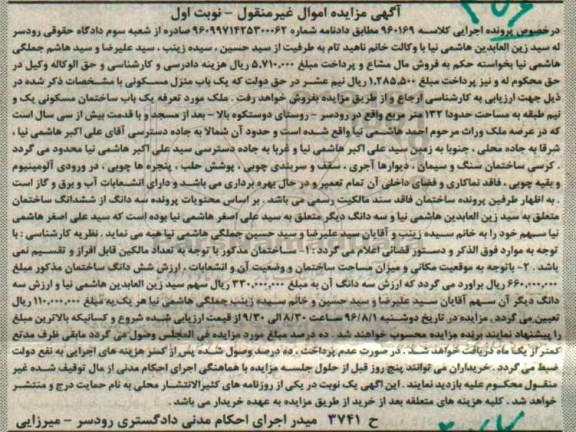 آگهی مزایده اموال غیرمنقول - نوبت اول
درخصوص پرونده اجرایی کلاسه ۹۶۰۱۶۹ مطابق دادنامه شماره ۹۶۰۹۹۷۱۴۲۵۳۰۰۰۶۲ صادره از شعبه سوم دادگاه حقوقی رودسر
له سید زین العابدین هاشمی نیا با وکالت خانم ناهید نام به طرفیت از سید حسین ، سیده زینب ، سید علیرضا و سید هاشم جملگی
هاشمی نیا بخواسته حکم به فروش مال مشاع و پرداخت مبلغ ۵,۷۱۰,۰۰۰ ریال هزینه دادرسی و کارشناسی و حق الوکاله وکیل در
حق محکوم له و نیز پرداخت مبلغ ۱,۲۸۵,۵۰۰ ریال نیم عشر در حق دولت که یک باب منزل مسکونی با مشخصات ذکر شده در
ذیل جهت ارزیابی به کارشناسی ارجاع و از طریق مزایده بفروش خواهد رفت . ملک مورد تعرفه یک باب ساختمان مسکونی یک و
نیم طبقه به مساحت حدودا ۱۳۲ متر مربع واقع در رودسر - روستای دوستکوه بالا - بعد از مسجد و با قدمت بیش از سی سال است
که در عرصه ملک وراث مرحوم احمد هاشمی نیا واقع شده است و حدود آن شمالا به جاده دسترسی آقای علی اکبر هاشمی نیا ،
شرقا به جاده محلی ، جنوبا به زمین سید علی اکبر هاشمی نیا و غربا به جاده دسترسی سید علی اکبر هاشمی نیا محدود می گردد
. کرسی ساختمان سنگ و سیمان ، دیوارها آجری ، سقف و سربندی چوبی ، پوشش حلب ، پنجره ها چوبی ، در ورودی آلومینیوم
و بقیه چوبی ، فاقد نماکاری و فضای داخلی آن تمام تعمیر و در حال بهره برداری می باشد و دارای انشعابات آب و برق و گاز است
. به اظهار طرفین پرونده ساختمان فاقد سند مالکیت رسمی می باشد . بر اساس محتویات پرونده سه دانگ از ششدانگ ساختمان
متعلق به سید زین العابدین هاشمی نیا و سه دانگ دیگر متعلق به سید علی اصغر هاشمی نیا بوده است که سید علی اصغر هاشمی
نیا سهم خود را به خانم سیده زینب و آقایان سید علیرضا و سید حسین جملگی هاشمی نیا هبه می نماید . نظریه کارشناسی : با
توجه به موارد فوق الذکر و دستور قضائی اعلام می گردد : ۱- ساختمان مذکور با توجه به تعداد مالکین قابل افراز و تقسیم نمی
باشد . ۲- باتوجه به موقعیت مکانی و میزان مساحت ساختمان و وضعیت آن و انشعابات ، ارزش شش دانگ ساختمان مذکور مبلغ
۶۶۰,۰۰۰,۰۰۰ ریال براورد می گردد که ارزش سه دانگ آن به مبلغ ۳۳۰,۰۰۰,۰۰۰ ریال سهم سید زین العابدین هاشمی نیا و ارزش سه
دانگ دیگر آن سهم آقایان سید علیرضا و سید حسین و خانم سیده زینب جملگی هاشمی نیا هر یک به مبلغ ۱۱۰,۰۰۰,۰۰۰ ریال
تعیین می گردد . مزایده در تاریخ دوشنبه ۹۶/۸/۱ ساعت ۸/۳۰ الی ۹/۳۰ از قیمت ارزیابی شده شروع و کسانیکه بالاترین مبلغ
را پیشنهاد نمایند برنده مزایده محسوب خواهند شد . ده درصد مبلغ مورد مزایده فی المجلس وصول می گردد مابقی ظرف مدتی
کمتر از یک ماه دریافت خواهد شد . در صورت عدم پرداخت ، ده درصد وصول شده پس از کسر هزینه های اجرایی به نفع دولت
ضبط می گردد . خریداران می توانند پنج روز قبل از حلول جلسه مزایده با هماهنگی اجرای احکام مدنی از مال توقیف شده غیر
منقول محکوم علیه بازدید نمایند . این آگهی یک نوبت در یکی از روزنامه های کثیرالانتشار محلی به نام حمایت درج و منتشر
خواهد شد . کلیه هزینه های متعلقه بعد از خرید از طریق مزایده به عهده خریدار می باشد .
ح ۳۷۴۱ میدر اجرای احکام مدنی دادگستری رودسر - میرزایی